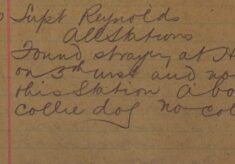 Supt Reynolds
All Stations
Found straying at H
on 3rd inst and no
this Station A bo
collie dog no col